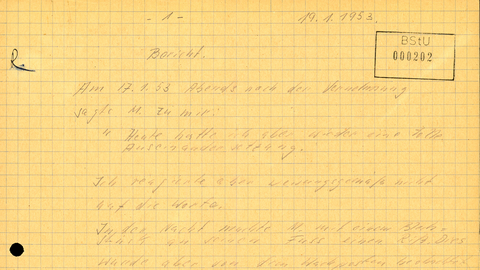 - 1 -
19.1.1953.
BStU
000202
Bericht.
Am 17.1.53 Abends nach der Vernehmung
sagte M. zu mir:
" Heute hatte ich aber wieder eine tolle
Auseinandersetzung."
Ich reagierte aber weisungsgemäß nicht
auf die Worte.
In der Nacht machte M. mit einem
an seinem Fuss einen Dies
wurde aber von dem